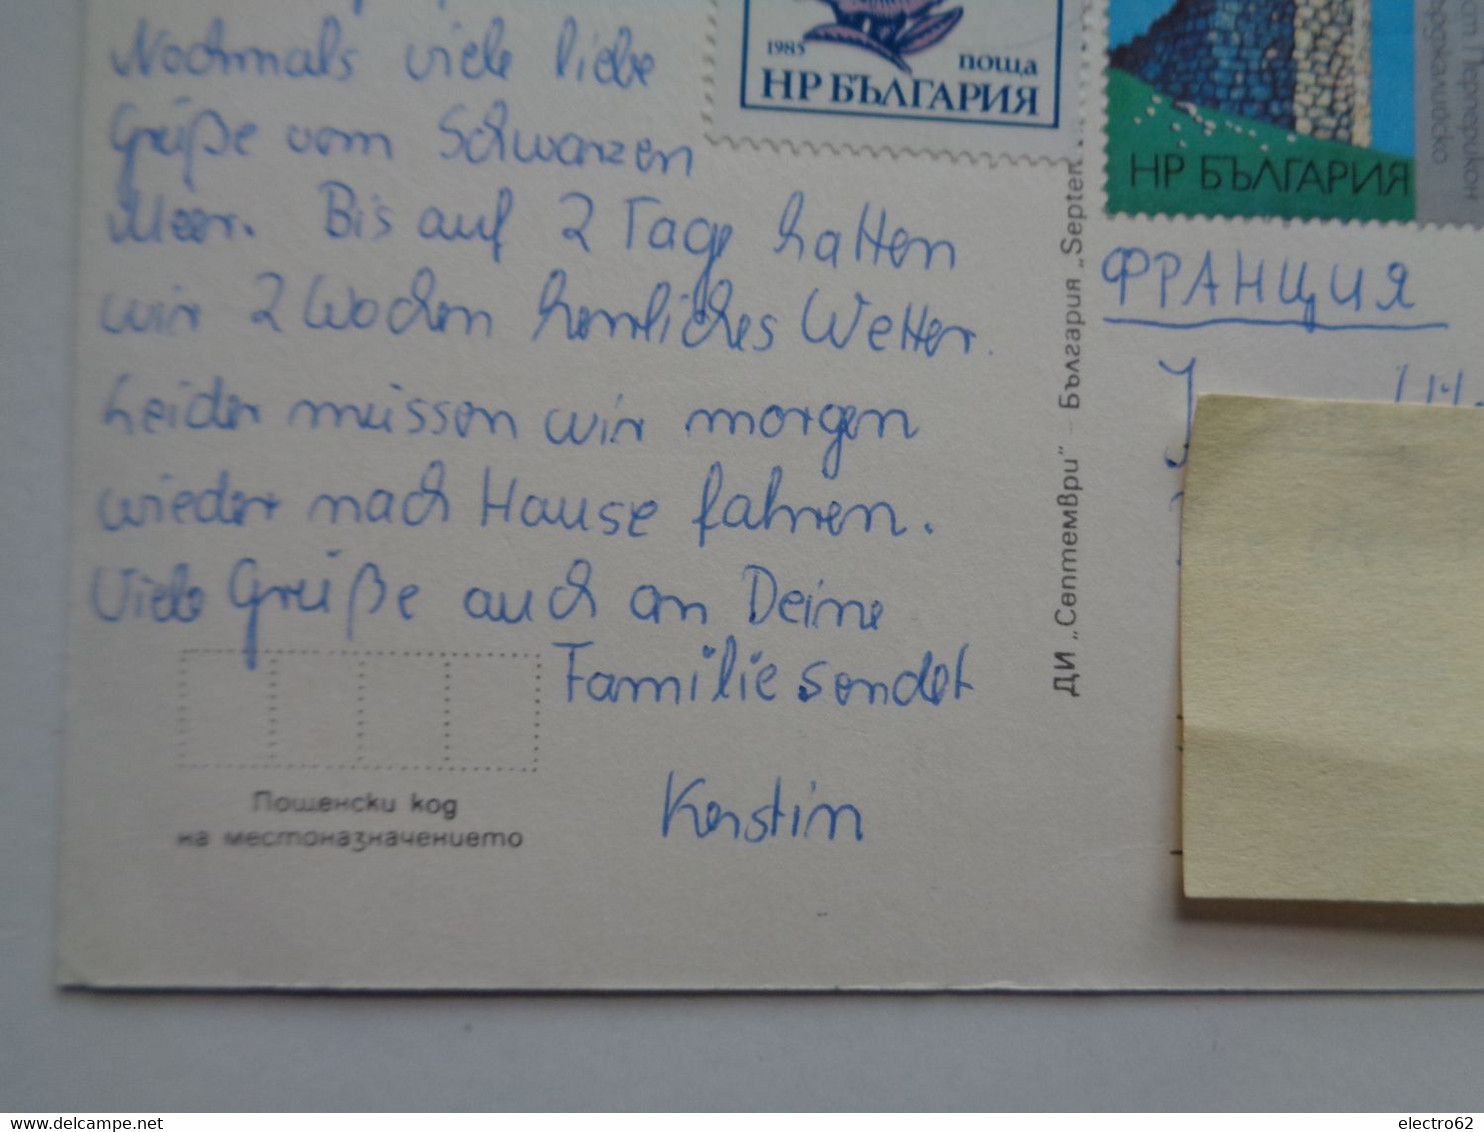 Nochmals viele liebe
Grüße vom Schwarzen
Meer. Bis auf 2 Tage hatten
wir 2 Wochen herrliches Wetter.
Leider müssen wir morgen
wieder nach Hause fahren.
Viele Grüße auch an Deine
Familie sendet
Kerstin
Пощенски код
на местоназначението
1985
поща
НР БЪЛГАРИЯ
НР БЪЛГАРИЯ
ДИ „Септември“ – България „Septem
ФРАНЦИЯ
electro62